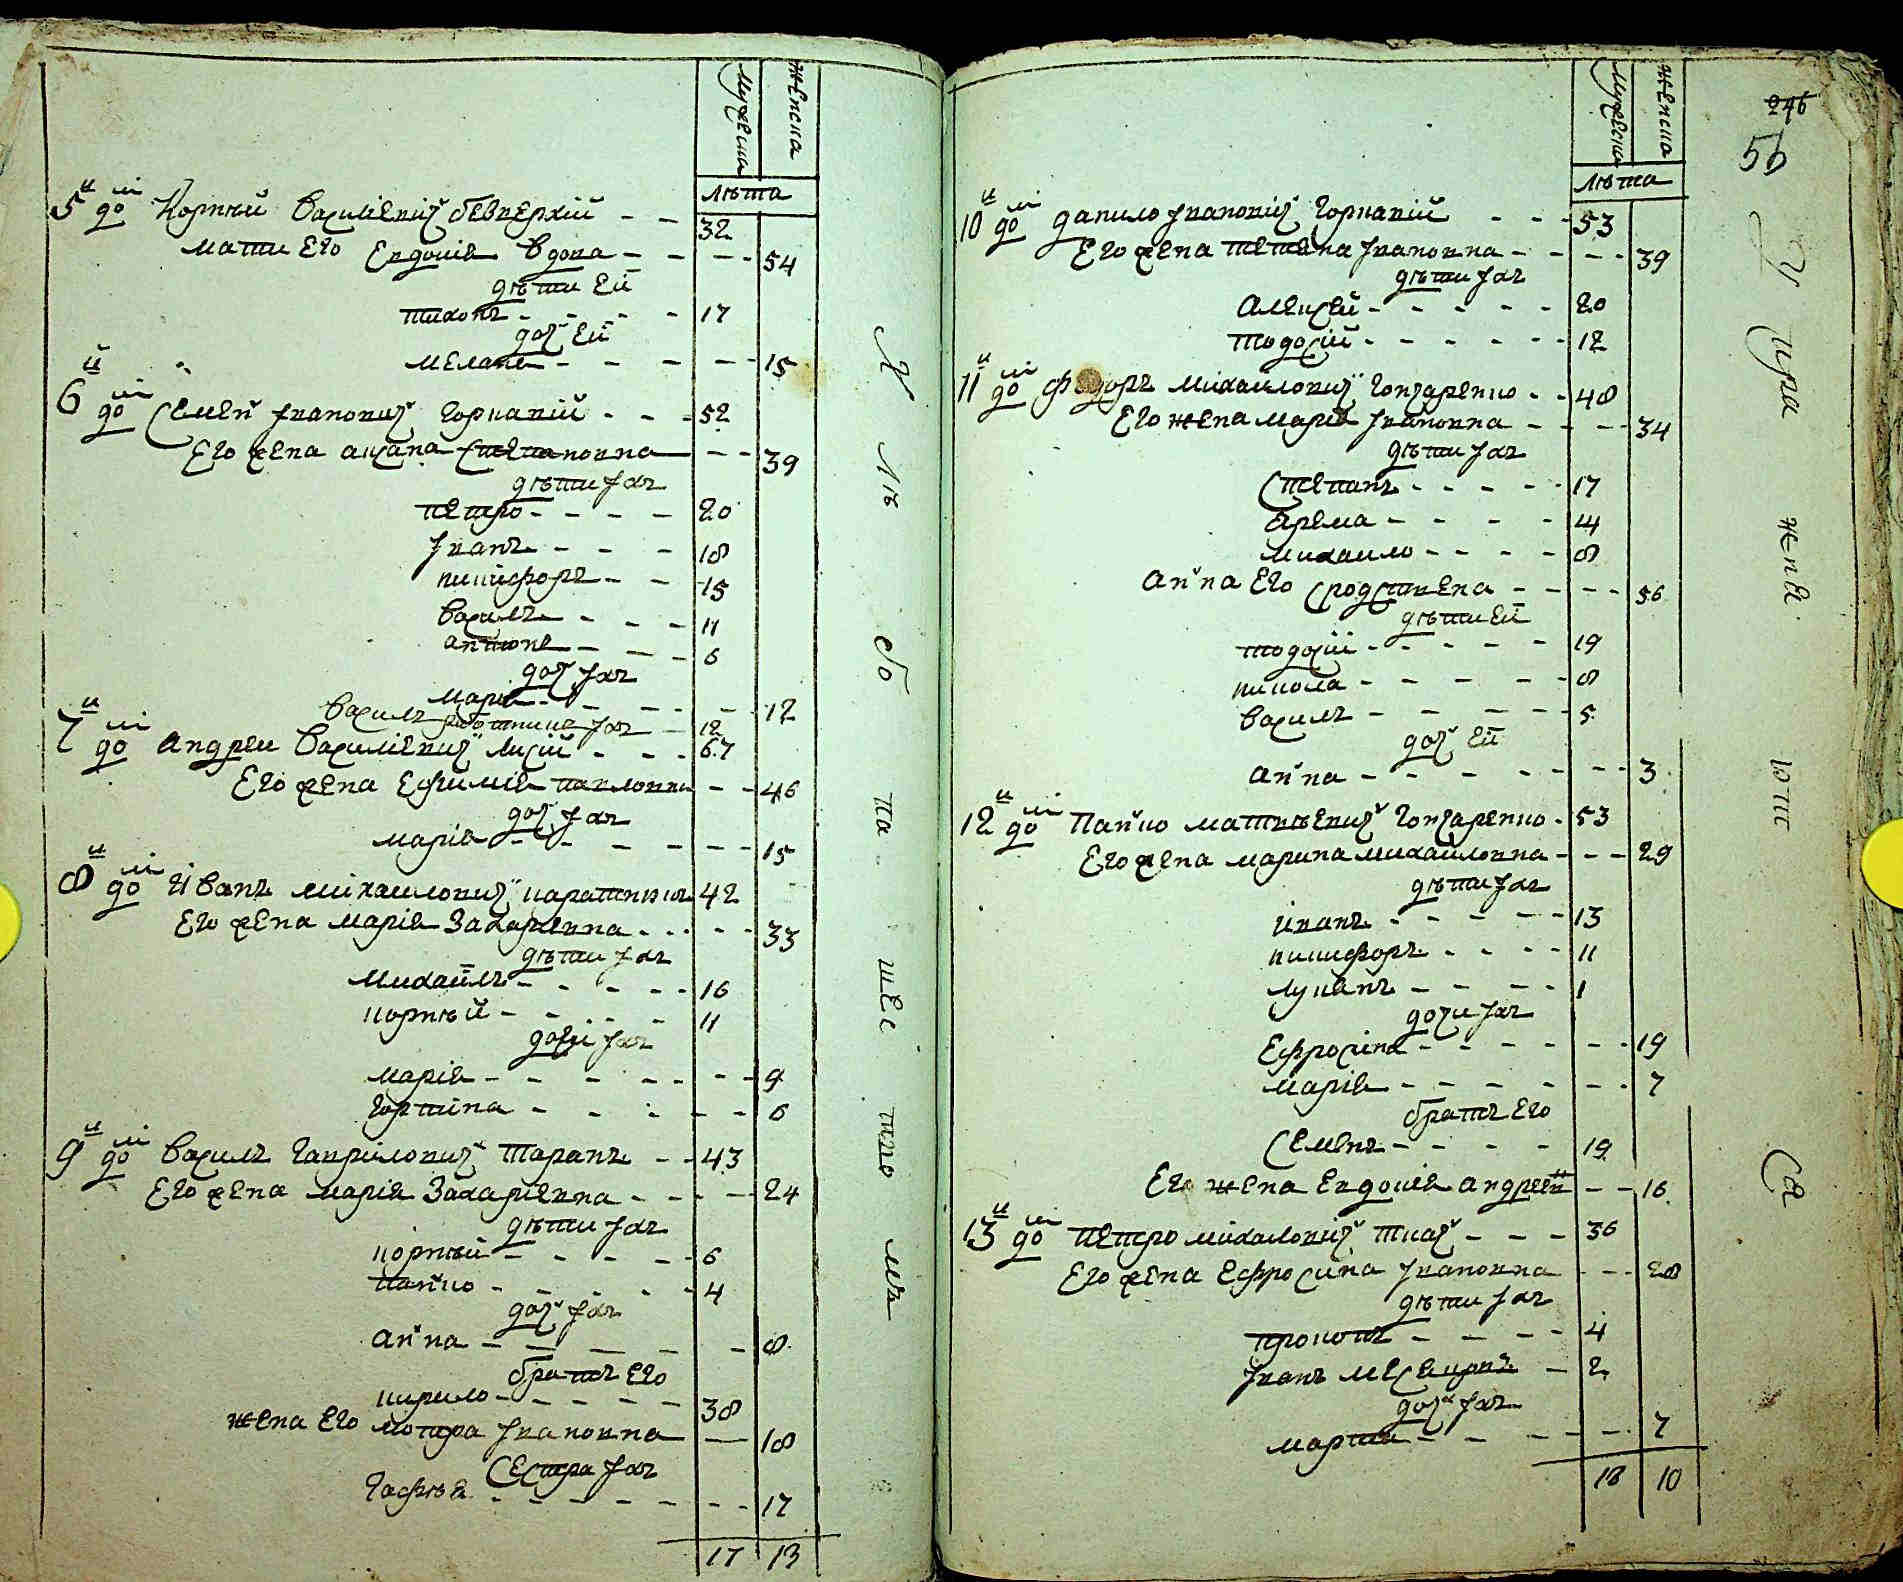 мужеска
женска
лѣта
5й дом Корнѣй Василіевичъ бевверхій - - 32
мати Его Евдокія вдова - - 54
дѣти Ей
тихонъ - - 17
доч Ей
меланія - - 15
6й дом Семен Ивановичъ Горкавій - - 52
Его жена аксана Степановна - - 39
дѣти Іхъ
петро - - 20
Іванъ - - 18
никифоръ - - 15
василъ - - 11
антонъ - - 6
доч Іхъ
марія - - 12
василъ работникъ Іхъ - 12
7й дом андреи Василіевичъ лисій - - 67
Его жена Ефимія павловна - - 46
доч Іхъ
марія - - 15
8й дом Иванъ михаиловичъ каратникъ 42
Его жена марія Захаріевна - - 33
дѣти Іхъ
михаилъ - - 16
корнѣй - - 11
дочки Іхъ
марія - - 9
горпина - - 6
9й дом василъ Гавриловичъ таранъ - - 43
Его жена марія Захаріевна - - 24
дѣти Іхъ
корнѣй - - 6
панко - - 4
доч Іхъ
анна - - 8
братъ Его
кирило - - 38
жена Его мотря Івановна - 18
Сестра Іхъ
Гафія - - 17
17 13
мужеска
женска
246
56
лѣта
10й дом данило Івановичъ Горкавій - - 53
Его жена тетяна Івановна - - 39
дѣти Іхъ
алексей - - 20
тодосій - - 12
11й дом федоръ михайловичъ Гончаренко - - 48
Его жена марія Івановна - - 34
дѣти Іхъ
Степанъ - - 17
ярема - - 14
михаило - - 8
анна Его сродствена - - 56
дѣти Ей
тодосій - - 19
никола - - 8
василъ - - 5
доч Ей
анна - - 3
12й дом панко матвѣевичъ Гончаренко - 53
Его жена марина михайловна - - 29
дѣти Іхъ
иванъ - - 13
никифоръ - - 11
лукянъ - - 1
дочки Іхъ
Ефросина - - 19
марія - - 7
братъ Его
Семенъ - - 19
Его жена Евдокія андреевна - - 16
13й дом петро михаловичъ ткач - - 36
Его жена Ефросина Івановна - - 28
дѣти Іхъ
прокопъ - - 4
Іванъ - 2
доч Іхъ
марта - - 7
18 10